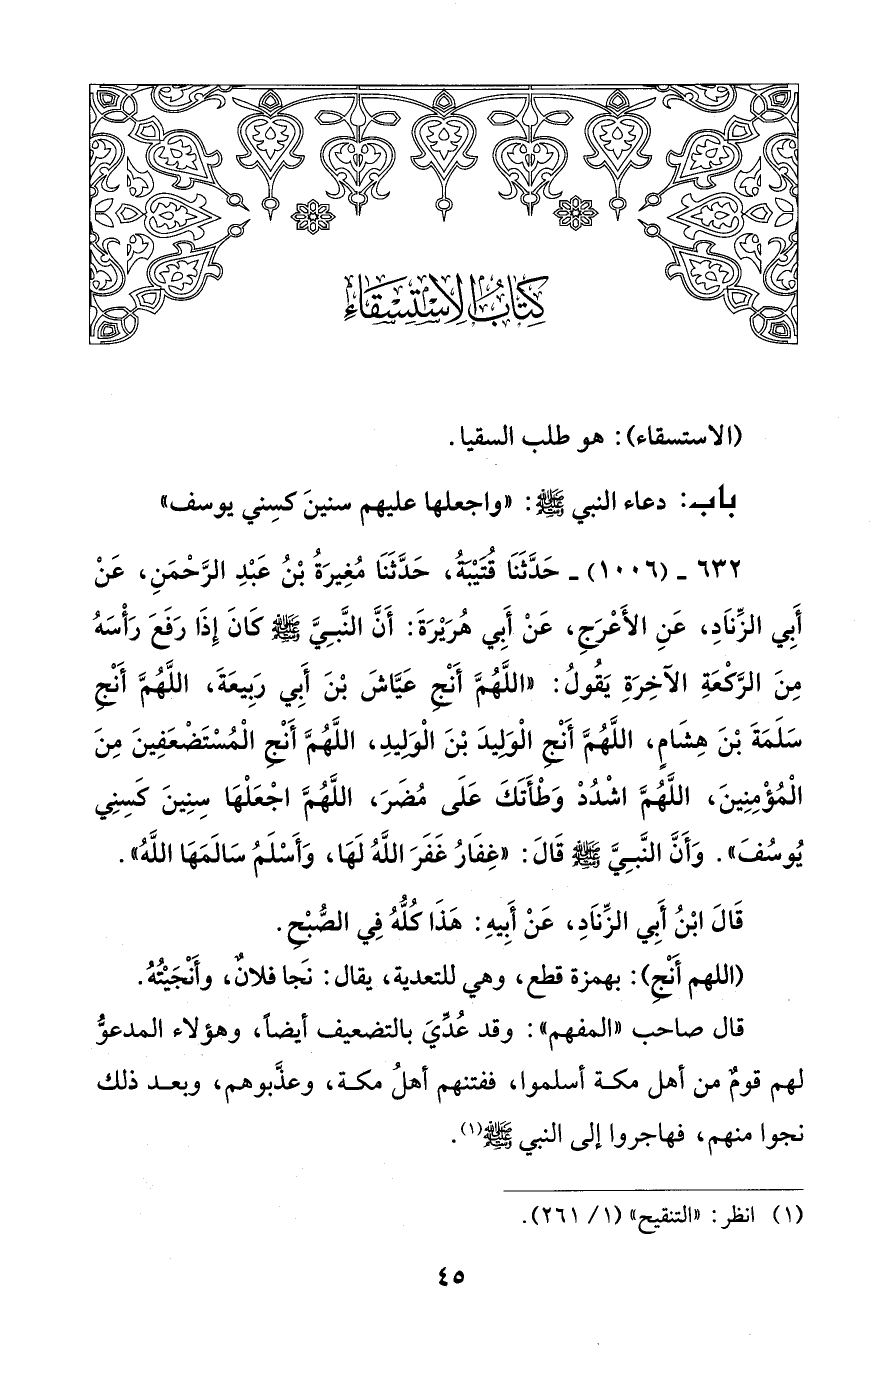 كِتَابُ الِاسْتِسْقَاءِ
(الاستسقاء): هو طلب السقيا.
باب: دعاء النبي ﷺ: «واجعلها عليهم سنينَ كسِني يوسف»
٦٣٢ ـ (١٠٠٦) ـ حَدَّثَنَا قُتَيْبَةُ، حَدَّثَنَا مُغِيرَةُ بْنُ عَبْدِ الرَّحْمَنِ، عَنْ
أَبِي الزِّنَادِ، عَنِ الأَعْرَجِ، عَنْ أَبِي هُرَيْرَةَ: أَنَّ النَّبِيَّ ﷺ كَانَ إِذَا رَفَعَ رَأْسَهُ
مِنَ الرَّكْعَةِ الآخِرَةِ يَقُولُ: «اللَّهُمَّ أَنْجِ عَيَّاشَ بْنَ أَبِي رَبِيعَةَ، اللَّهُمَّ أَنْجِ
سَلَمَةَ بْنَ هِشَامٍ، اللَّهُمَّ أَنْجِ الْوَلِيدَ بْنَ الْوَلِيدِ، اللَّهُمَّ أَنْجِ الْمُسْتَضْعَفِينَ مِنَ
الْمُؤْمِنِينَ، اللَّهُمَّ اشْدُدْ وَطْأَتَكَ عَلَى مُضَرَ، اللَّهُمَّ اجْعَلْهَا سِنِينَ كَسِنِي
يُوسُفَ». وَأَنَّ النَّبِيَّ ﷺ قَالَ: «غِفَارُ غَفَرَ اللَّهُ لَهَا، وَأَسْلَمُ سَالَمَهَا اللَّهُ».
قَالَ ابْنُ أَبِي الزِّنَادِ، عَنْ أَبِيهِ: هَذَا كُلُّهُ فِي الصُّبْحِ.
(اللهم أَنْجِ): بهمزة قطع، وهي للتعدية، يقال: نَجا فلانٌ، وأَنْجَيْتُهُ.
قال صاحب «المفهم»: وقد عُدِّيَ بالتضعيف أيضاً، وهؤلاء المدعوُّ
لهم قومٌ من أهل مكة أسلموا، ففتنهم أهلُ مكة، وعذَّبوهم، وبعد ذلك
نجوا منهم، فهاجروا إلى النبي ﷺ(١).
(١) انظر: «التنقيح» (١/ ٢٦١).
٤٥